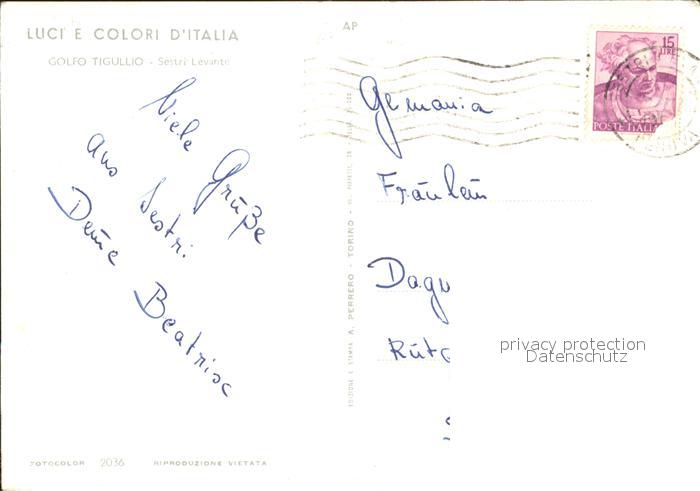 LUCI E COLORI D'ITALIA
GOLFO TIGULLIO - Sestri Levante
AP
15
LIRE
POSTE ITALIANE
Viele Grüße
aus Sestri.
Deine Beatrise
Germania
Fräulein
Dagu
Rüt
privacy protection
Datenschutz
EDIZIONE E STAMPA A. PERRERO - TORINO
FOTOCOLOR 2036 RIPRODUZIONE VIETATA